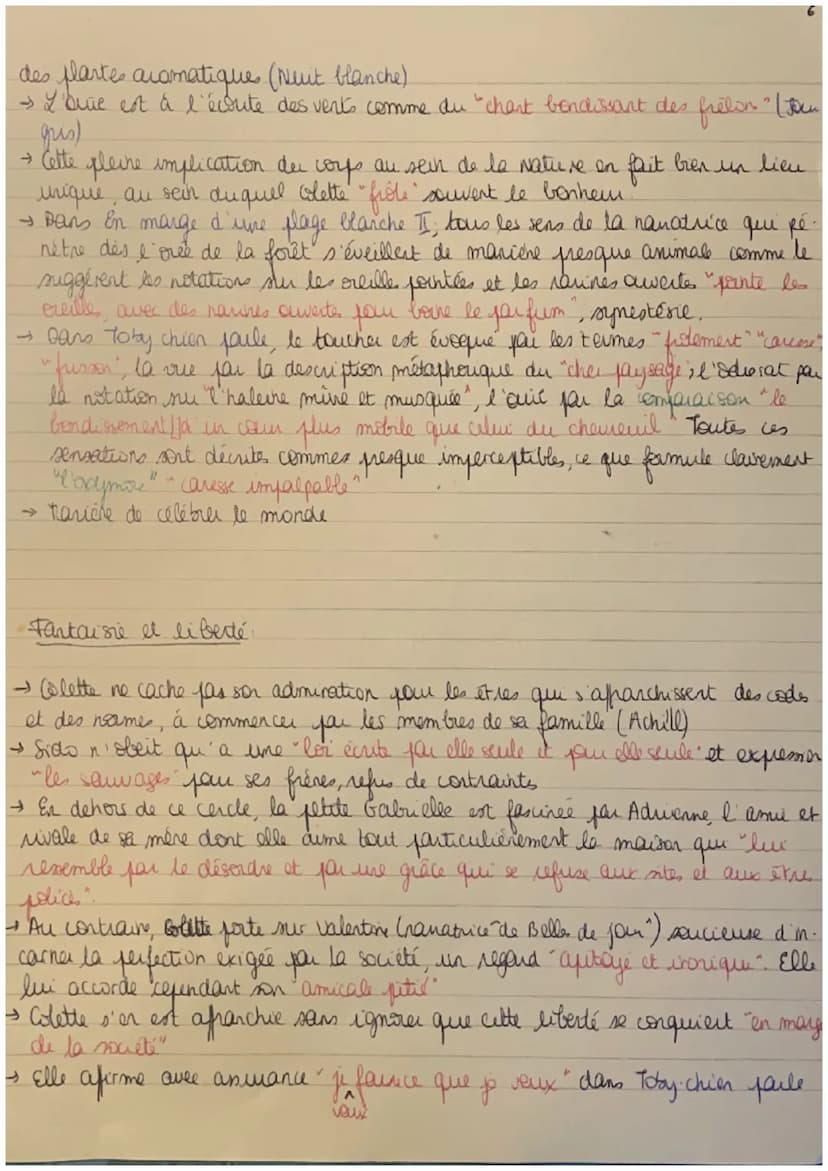 6
des plantes aromatiques (Nuit blanche)
→ L'ouïe est à l'écoute des vents comme du "chant bondissant des frêlon" (Jour
gris)
→ Cette pleine implication du corps au sein de la Nature en fait bien un lieu
unique, au sein duquel Colette "frôle" souvent le bonheur.
→ Dans En marge d'une plage blanche II, tous les sens de la narratrice qui pé-
nètre dès l'orée de la forêt s'éveillent de manière presque animale comme le
suggèrent les notations sur les oreilles pointées et les narines ouvertes "pointe les
oreilles, avec des narines ouvertes pour boire le parfum", synestésie.
→ Dans Toby chien parle, le toucher est évoqué par les termes "frôlement" "caresse",
"frisson", la vue par la description métaphorique du "cher paysage", l'odorat par
la notation sur "l'haleine mûre et musquée", l'ouïe par la comparaison "le
bondissement d'un cœur plus mobile que celui du chevreuil" Toutes ces
sensations sont décrites commes presque imperceptibles, ce que formule clairement
"caresse impalpable"
→ Manière de célébrer le monde
Fantaisie et liberté.
→ Colette ne cache pas son admiration pour les êtres qui s'affranchissent des codes
et des normes, à commencer par les membres de sa famille (Achill)
→ Sido n'obeit qu'a une "loi écrite par elle seule et pour elle seule" et expression
"les sauvages" pour ses frères, refus de contraints
→ En dehors de ce cercle, la petite Gabrielle est fascinée par Adrienne, l'amie et
rivale de sa mère dont elle aime tout particulièrement la maison qui "lui
ressemble par le désordre et par une grâce qui se refuse aux sites et aux être
policés".
→ Au contraire, Colette porte sur Valentine (narratrice de Belles de jour") soucieuse d'in-
carner la perfection exigée par la société, un regard "apitoyé et ironique". Elle
lui accorde cependant son "amicale pitié"
→ Colette s'en est afranchie sans ignorer que cette liberté se conquiert "en marge
de la société"
→ Elle afirme avec assurance "je fairece que je veux" dans Toby-chien parle
^
vaux